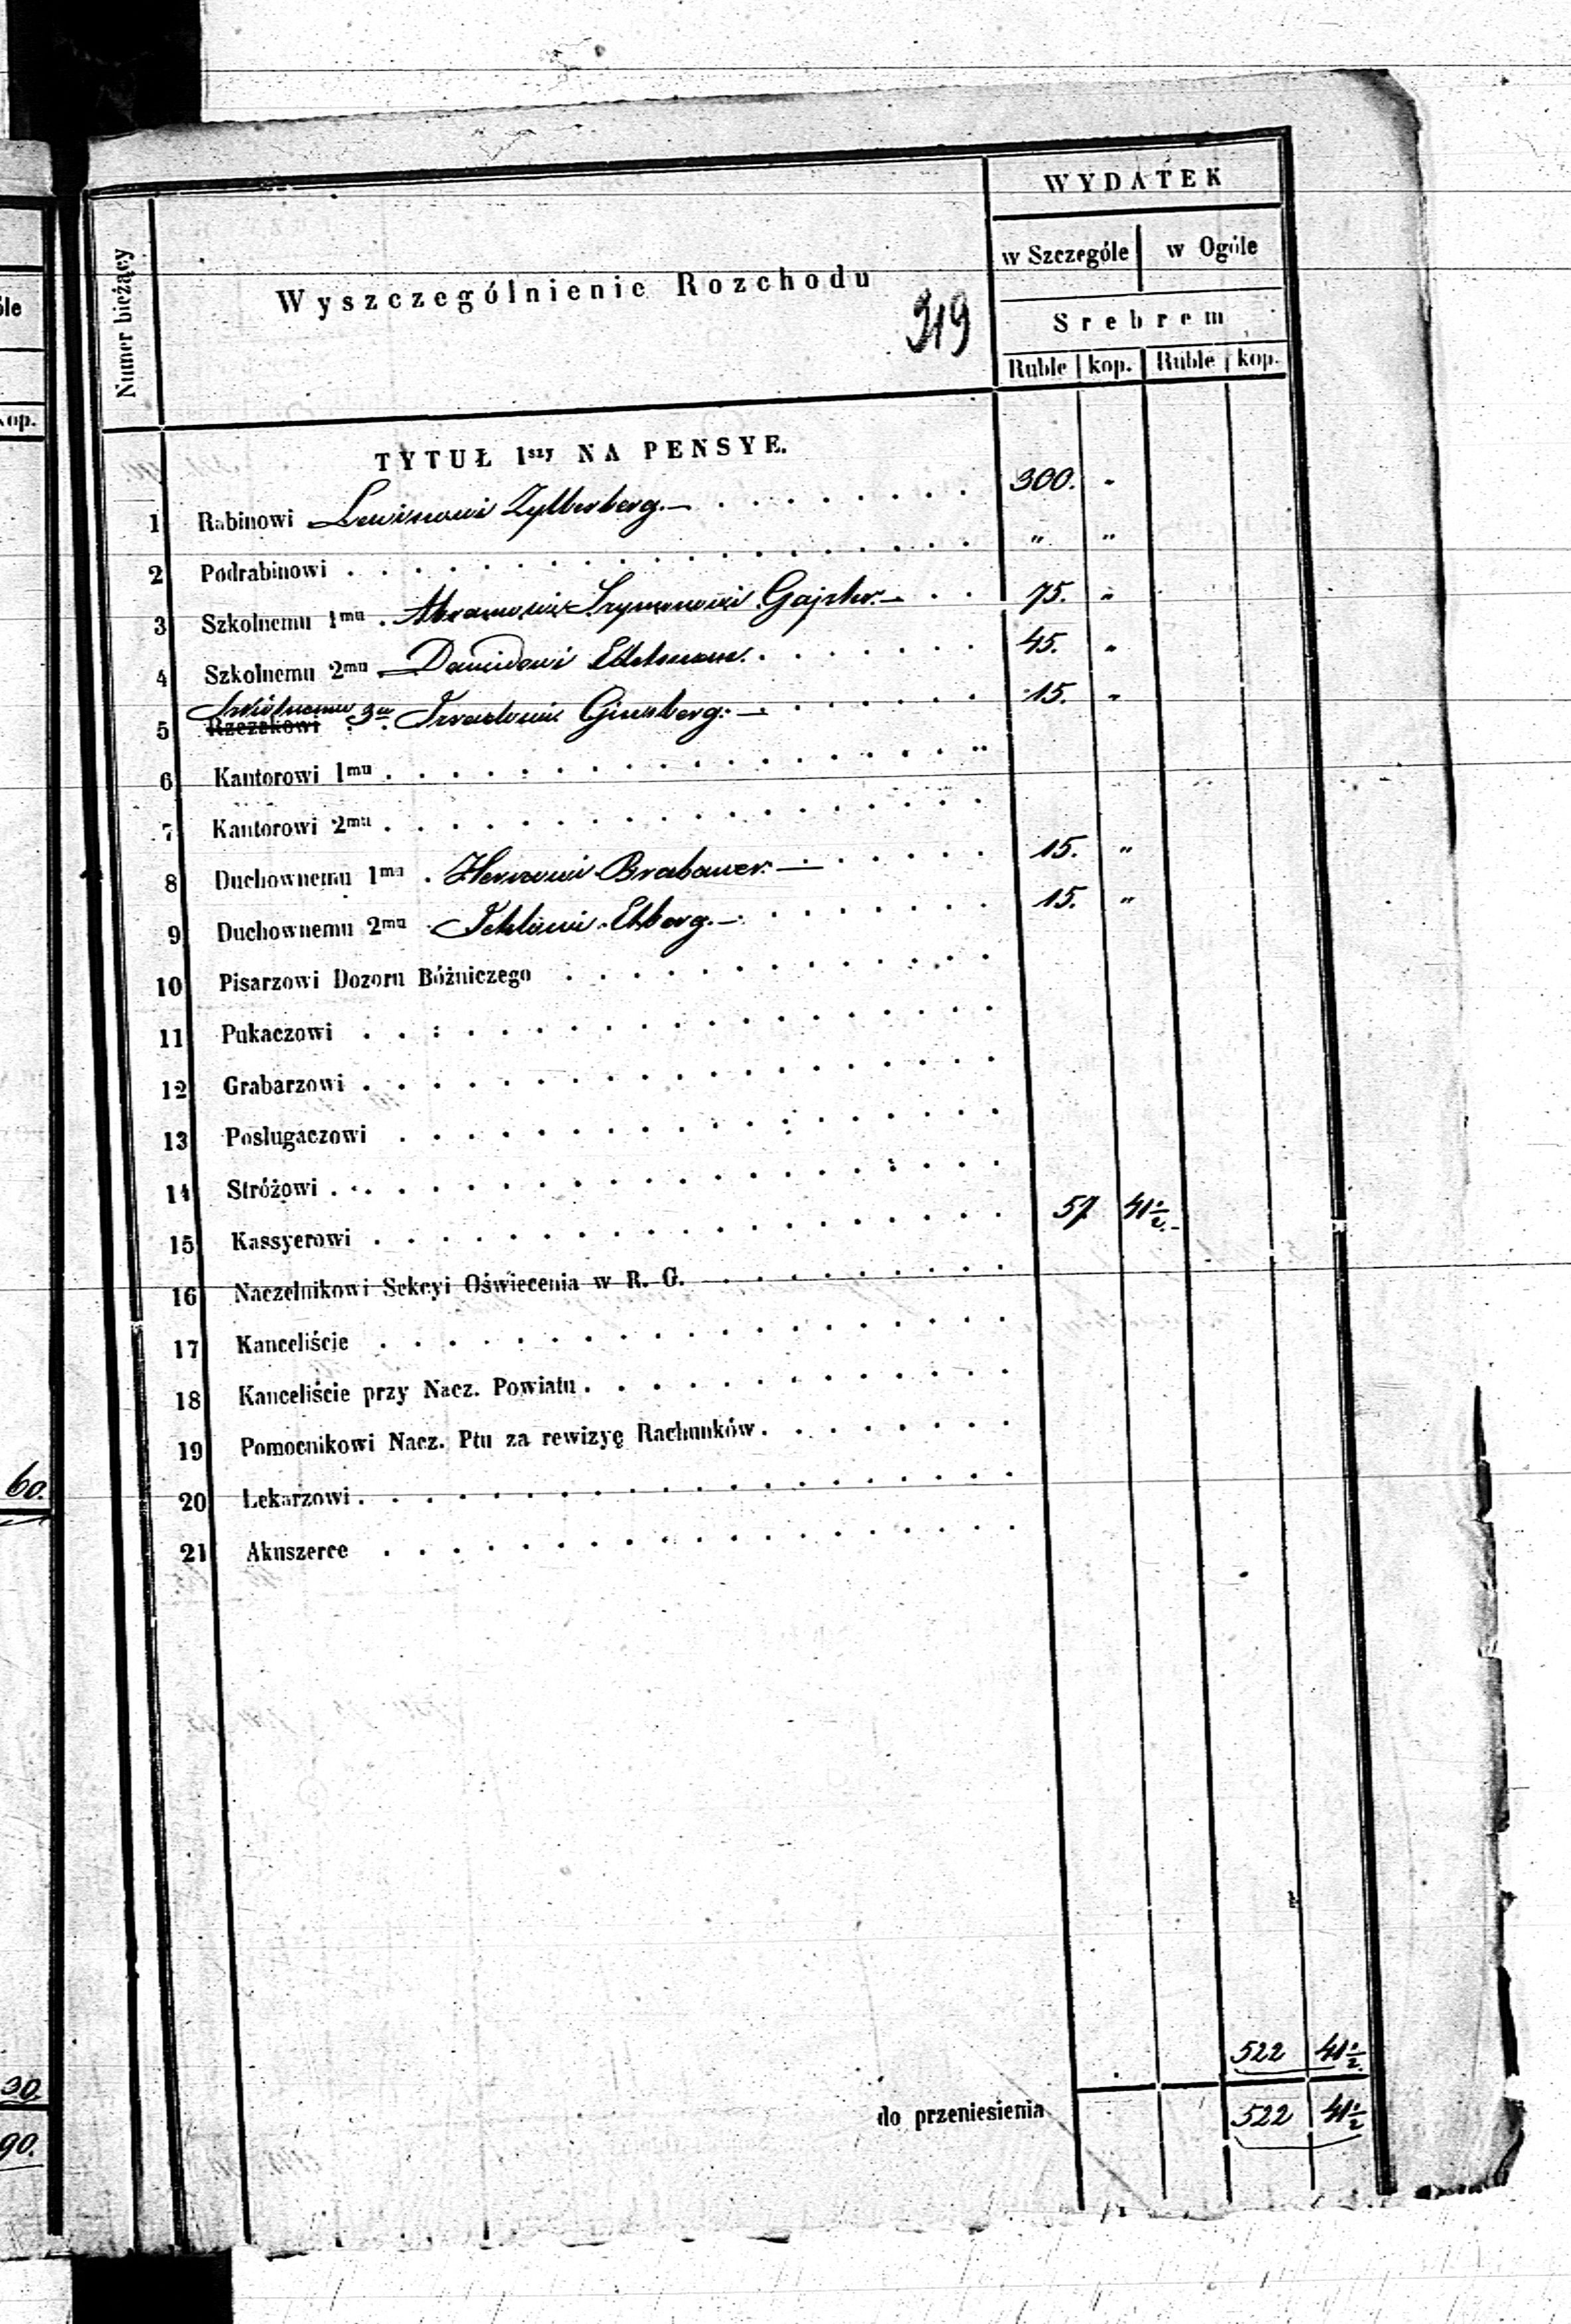 WYDATEK
w Szczególe w Ogóle
Numer bieżący Wyszczególnienie Rozchodu
319
Srebrem
Ruble kop. Ruble kop.
TYTUŁ 1szy NA PENSYE.
1 Rabinowi Lewinowi Zylberberg.— 300. "
2 Podrabinowi " "
3 Szkolnemu 1mu Abramowi Szymonowi 75. "
4 Szkolnemu 2mu Dawidowi Edelman. 45. "
5 Szkólnemu 3u Rzezakowi Ginsberg.— 15. "
6 Kantorowi 1mu "
7 Kantorowi 2mu
8 Duchownemu 1mu Brabaner.— 15. "
9 Duchownemu 2mu 15. "
10 Pisarzowi Dozoru Bóżniczego
11 Pukaczowi
12 Grabarzowi
13 Posługaczowi
14 Stróżowi
15 Kassyerowi 57 41½
16 Naczelnikowi Sekcyi Oświecenia w R. G.
17 Kanceliście
18 Kanceliście przy Nacz. Powiatu
19 Pomocnikowi Nacz. Ptu za rewizyę Rachunków
20 Lekarzowi
21 Akuszerce
522 41½
do przeniesienia 522 41½
óle
kop.
60.
30.
90.